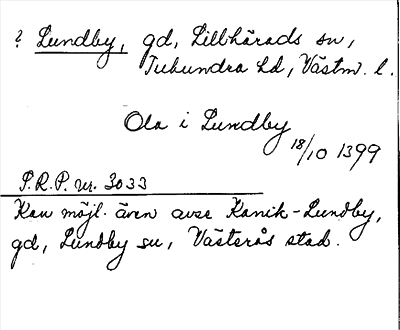 ? Lundby, gd, Lillhärads sn,
Tuhundra hd, Västm. l.
Ola i Lundby
18/10 1399
S.R.P. nr. 3033
Kan möjl. även avse Kanik-Lundby,
gd, Lundby sn, Västerås stad.